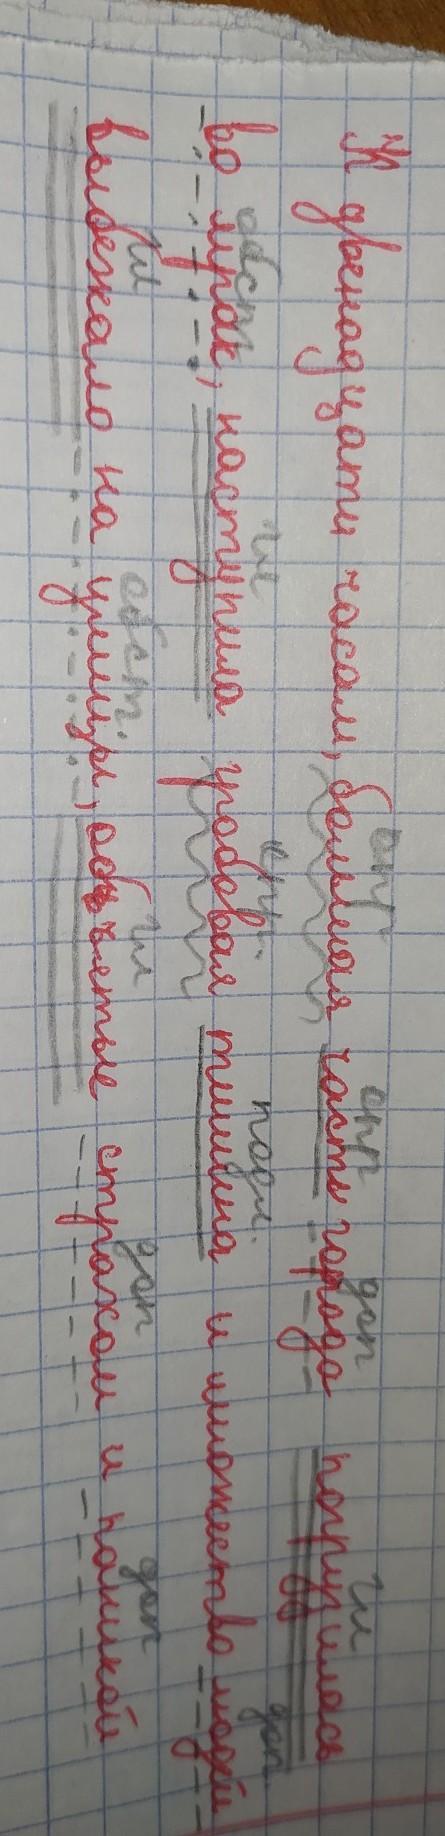 опр опр доп гл
К двенадцати часам, большая часть города погрузилась
обст гл опр. подл. доп.
во мрак, наступила гробовая тишина и множество людей
гл обст. гл доп доп
выбежало на улицы, объятые страхом и паникой